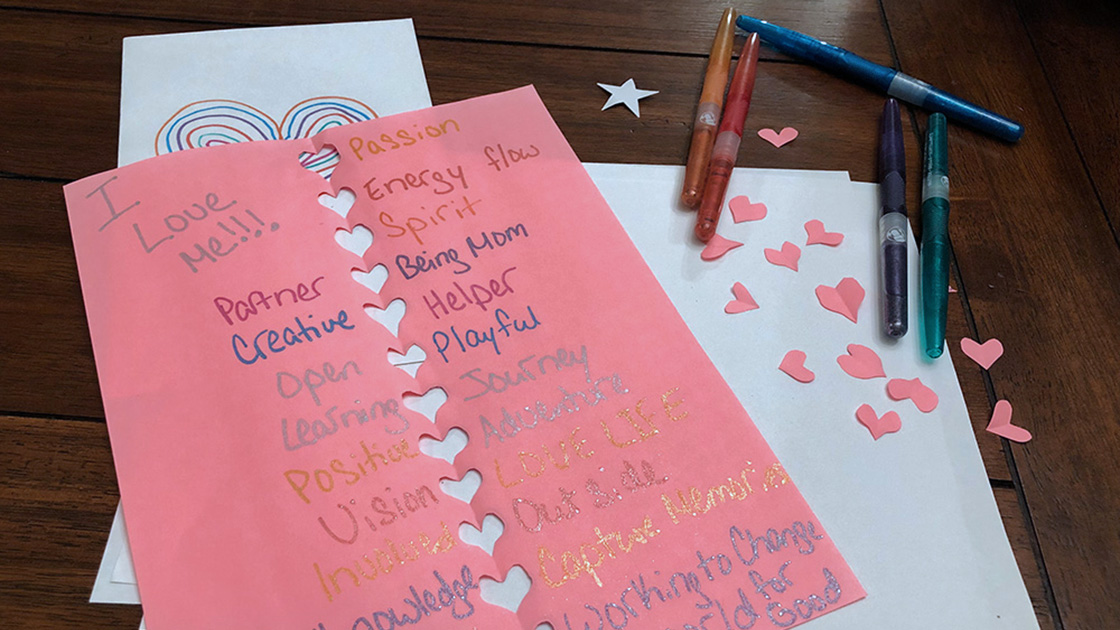 I
Love
Me!!!.
Partner
Creative
Open
Learning
Positive
Vision
Involved
Knowledge
Passion
Energy flow
Spirit
Being Mom
Helper
Playful
Journey
Adventure
LOVE LIFE
Out side
Capture Memories
Working to Change
World for
Good